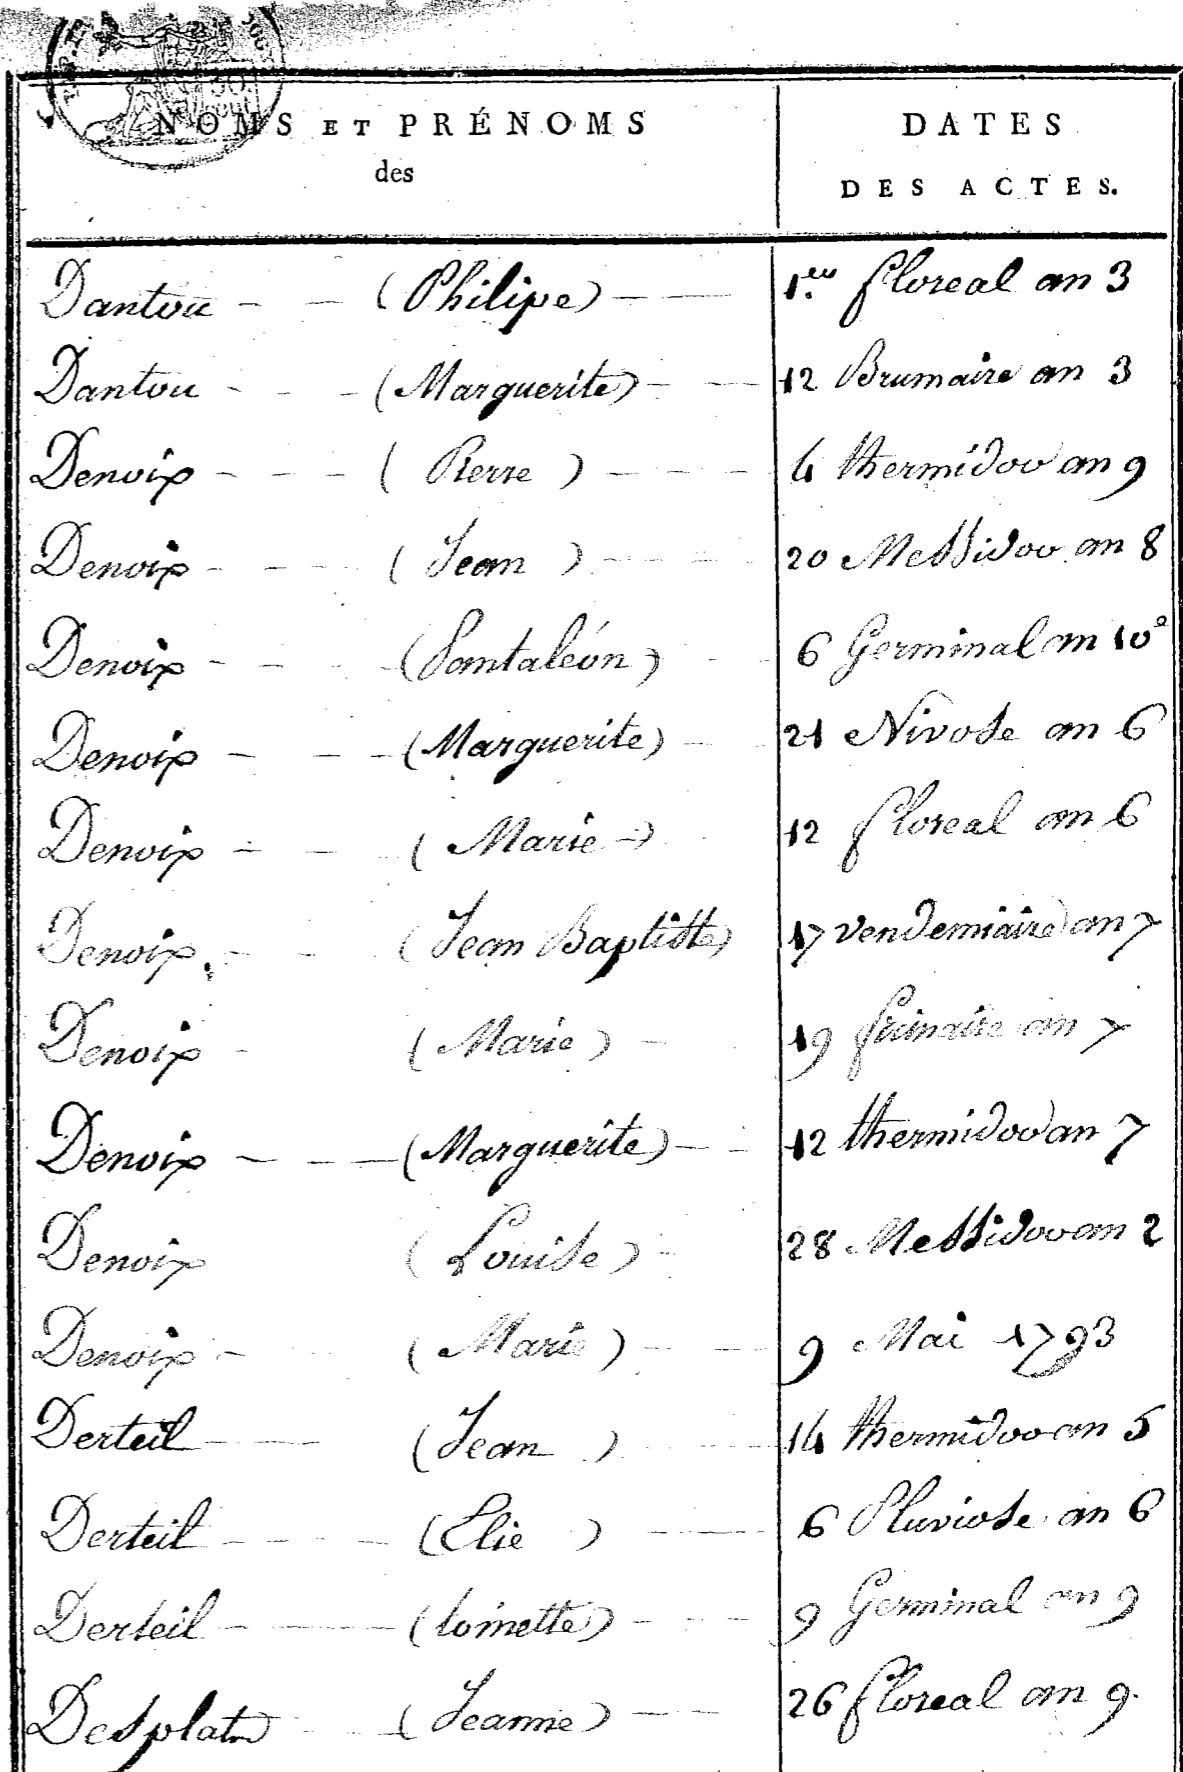 NOMS ET PRÉNOMS
des
DATES
DES ACTES.
Dantou - - (Philipe) - - 1.er floreal an 3
Dantou - - - (Marguerite) - - 12 Brumaire an 3
Denoix - - - - ( Pierre ) - - - - 4 thermidor an 9
Denoix - - - ( Jean ) - - - 20 Messidor an 8
Denoix - - - (Pantaléon) - - 6 Germinal an 10e
Denoix - - - (Marguerite) - - 21 Nivose an 6
Denoix - - ( Marie -) 12 floreal an 6
Denoix. - - (Jean Baptiste) 17 vendemiaire an 7
Denoix - ( Marie ) - 19 frimaire an 7
Denoix - - - (Marguerite) - - 12 thermidor an 7
Denoix ( Louise ) - 28 Messidor an 2
Denoix - ( Marie ) - - - 9 Mai 1793
Derteil - - (Jean ) - - - 14 thermidor an 5
Derteil - - - (Elie ) - - - 6 Pluviose an 6
Derteil - - - (toinette) - - - 9 Germinal an 9
(Jeanne) - - 26 floreal an 9.